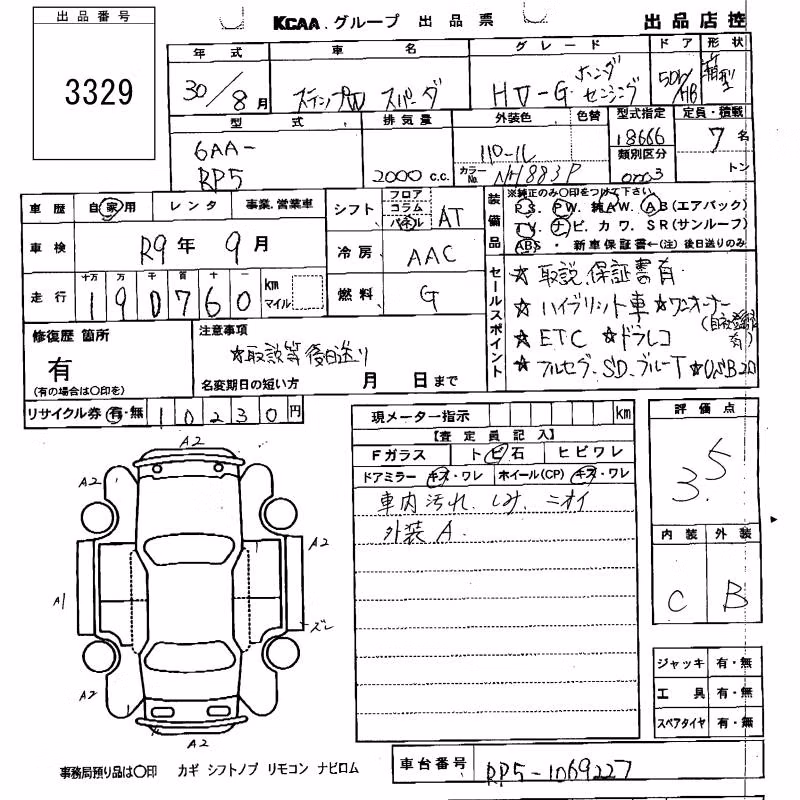 出品番号
3329
KCAA.グループ 出品票
出品店控
年式 車名 グレード ドア 形状
30/8月 ステップW スパーダ HV-G ホンダセンシング 5Dr/HB 箱型
型式 排気量 外装色 色替 型式指定 定員・積載
6AA-RP5 2000 c.c. パール カラーNo. NH883P 18666 7名
類別区分 0003 トン
車歴 自家用 レンタ 事業.営業車
シフト フロア コラム パネル AT
車検 R9年 9月
冷房 AAC
走行 十万 万 千 百 十 一
190760 km マイル
燃料 G
装備品 ※純正のみ〇印をつけて下さい
P S. P W. 純AW. A B(エアバック)
T V. ナ ビ. カ ワ. S R(サンルーフ)
ABS ・ 新車保証書←(注) 後日送りのみ
セールスポイント
☆ 取説.保証書有
☆ ハイブリット車 ☆ワンオーナー
(自社登録有)
☆ ETC ☆ドラレコ
☆ フルセグ.SD.ブルーT ☆USB2コ
修復歴 箇所
有
(有の場合は〇印を)
注意事項
☆取説等後日送り
名変期日の短い方 月 日まで
リサイクル券 有・無 10230円
現メーター指示 km
【査定員記入】
Fガラス トビ石 ヒビワレ
ドアミラー キズ・ワレ ホイール(CP) キズ・ワレ
車内汚れ.しみ.ニオイ
外装A.
評価点
3.5
内装 外装
C B
ジャッキ 有・無
工具 有・無
スペアタイヤ 有・無
A2
A2
A2
A1
ズレ
A2
A2
事務局預り品は〇印 カギ シフトノブ リモコン ナビロム
車台番号 RP5-1069227